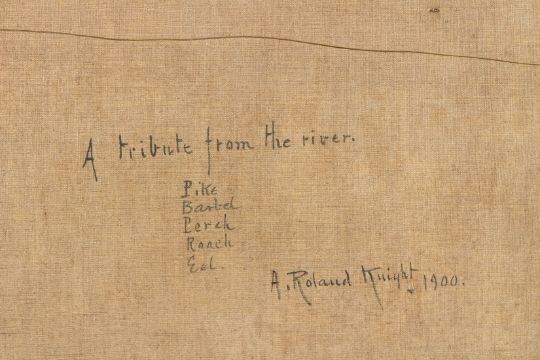 A tribute from the river.
Pike
Barbel
Perch
Roach
Eel.
A. Roland Knight 1900.